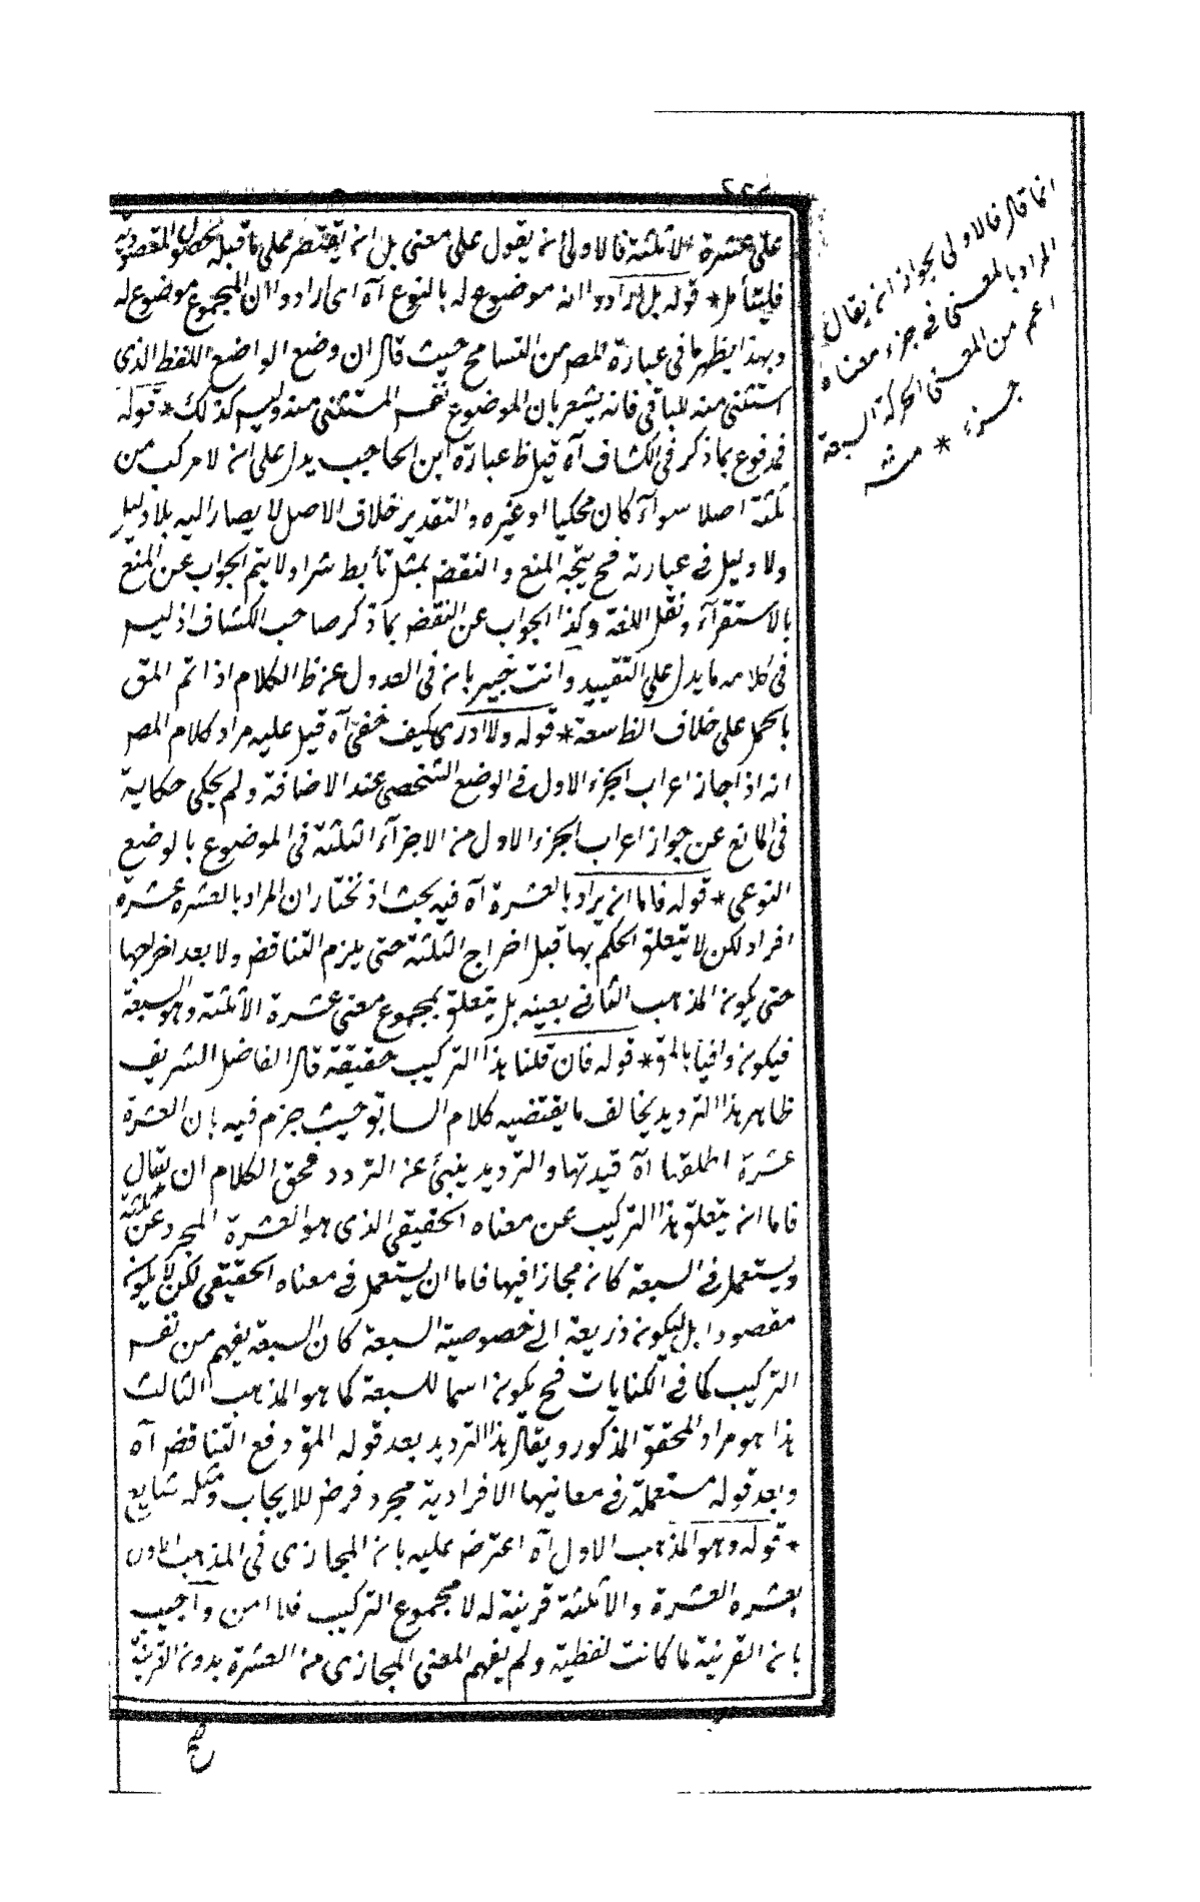 على عشرة الا ثلثة فالاولى ان يقول على معنى بل ان يقتصر على ما قبله لحصول المقصود به
فليتأمل * قوله بل ارادوا انه موضوع له بالنوع آه اى ارادوا ان المجموع موضوع له
وبهذا يظهر ما فى عبارة المص من التسامح حيث قال ان وضع الواضع اللفظ الذى
استثنى منه للباقى فانه يشعر بان الموضوع نفس المستثنى منه وليس كذلك * قوله
فمدفوع بما ذكر فى الكشاف آه قيل ظ عبارة ابن الحاجب يدل على ان لا مركب من
ثلثة اصلا سواء كان محكيا او غيره والتقدير خلاف الاصل لا يصار اليه بلا دليل
ولا دليل فى عبارته فح يتجه المنع والنقض بمثل تأبط شرا ولا يتم الجواب عن المنع
بالاستقراء ونقل اللغة وكذا الجواب عن النقض بما ذكر صاحب الكشاف اذ ليس
فى كلامه ما يدل على التقييد وانت خبير بان فى العدول عن ظ الكلام اذا تم المق
بالحمل على خلاف الظ سعة * قوله ولا ادرى كيف خفى آه قيل عليه مراد كلام المص
انه اذا جاز اعراب الجزء الاول فى الوضع الشخصى عند الاضافة ولم يحكى حكاية
فى المانع عن جواز اعراب الجزء الاول من الاجزاء الثلثة فى الموضوع بالوضع
النوعى * قوله فاما ان يراد بالعشرة آه فيه بحث اذ نختار ان المراد بالعشرة عشرة
افراد لكن لا يتعلق الحكم بها قبل اخراج الثلثة حتى يلزم التناقض ولا بعد اخراجها
حتى يكون المذهب الثانى بعينه بل يتعلق بمجموع معنى عشرة الا ثلثة وهو السبعة
فيكون وافيا بالمق * قوله فان قلنا هذا التركيب حقيقة قال الفاضل الشريف
ظاهر هذا الترديد يخالف ما يقتضيه كلام السابق حيث جزم فيه بان العشرة
عشرة اطلقها آه قيدتها والترديد ينبئ عن التردد فحق الكلام ان يقال
فاما ان يتعلق هذا التركيب عن معناه الحقيقى الذى هو العشرة المجرد عن ثلثة
ويستعمل فى السبعة كان مجازا فيها فاما ان يستعمل فى معناه الحقيقى لكن لا يكون
مقصودا بل ليكون ذريعة الى خصوصية السبعة كان السبعة يفهم من نفس
التركيب كما فى الكنايات فح يكون اسما للسبعة كما هو المذهب الثالث
هذا هو مراد المحقق المذكور ويقال هذا الترديد بعد قوله المق دفع التناقض آه
وبعد قوله مستعملة فى معانيها الافرادية مجرد فرض للايجاب ومثله شايع
* قوله وهو المذهب الاول آه اعترض عليه بان المجازى فى المذهب الاول
العشرة والا ثلثة قرينة له لا مجموع التركيب فلا امن واجيب
بان القرينة ما كانت لفظية ولم يفهم المعنى المجازى من العشرة بدون القرينة
انما قال فالاولى لجواز ان يقال
المراد بالمعنى فى جزء معناه
اعم من المعنى
جزء * منه
صح